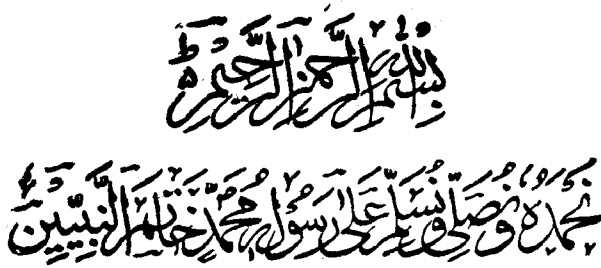 بِسْمِ اللّٰهِ الرَّحْمٰنِ الرَّحِیْمِ
نَحْمَدُهٗ وَ نُصَلِّیْ وَ نُسَلِّمُ عَلٰی رَسُوْلِهٖ مُحَمَّدٍ خَاتَمِ النَّبِیِّیْنَ